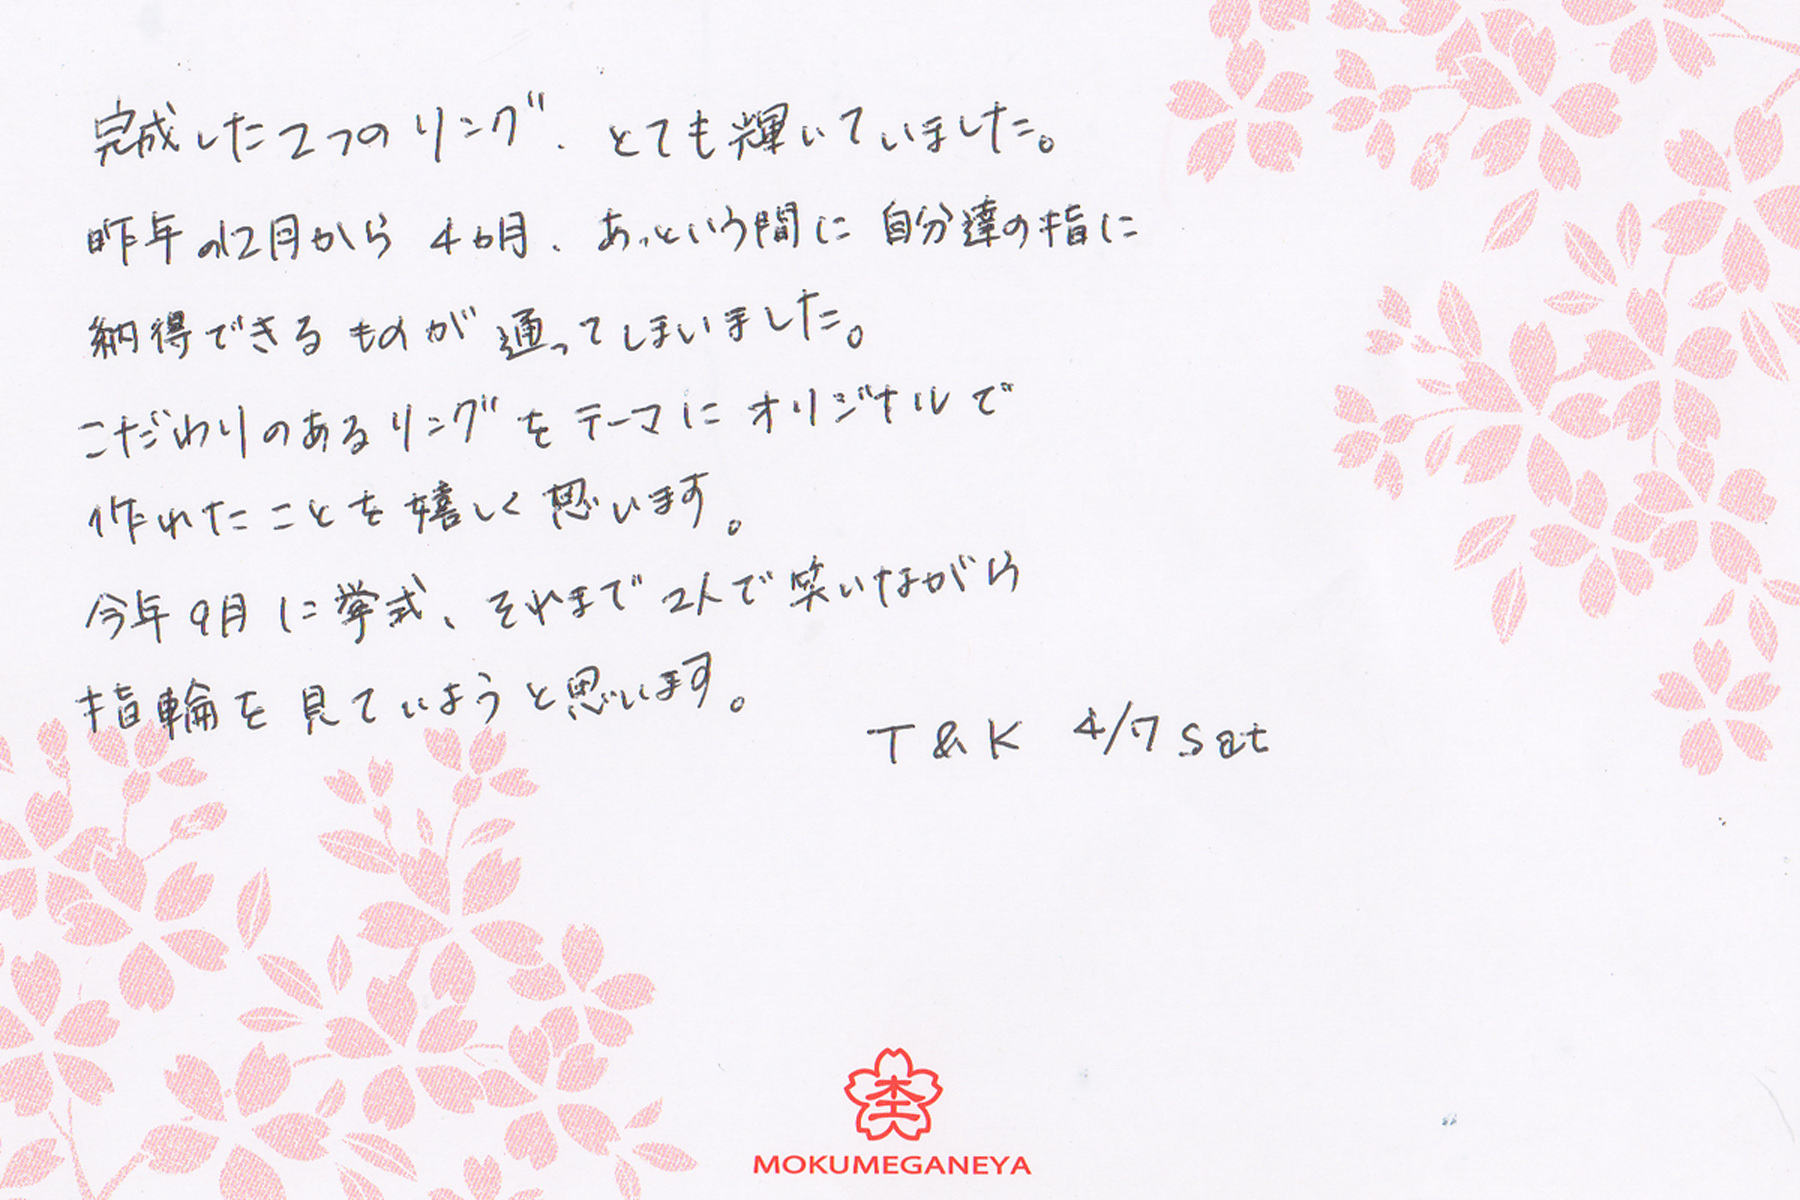 完成した2つのリング、とても輝いていました。
昨年の12月から4ヵ月、あっという間に自分達の指に
納得できるものが通ってしまいました。
こだわりのあるリングをテーマにオリジナルで
作れたことを嬉しく思います。
今年9月に挙式、それまで2人で笑いながら
指輪を見ていようと思います。
T & K 4/7 Sat
杢
MOKUMEGANEYA